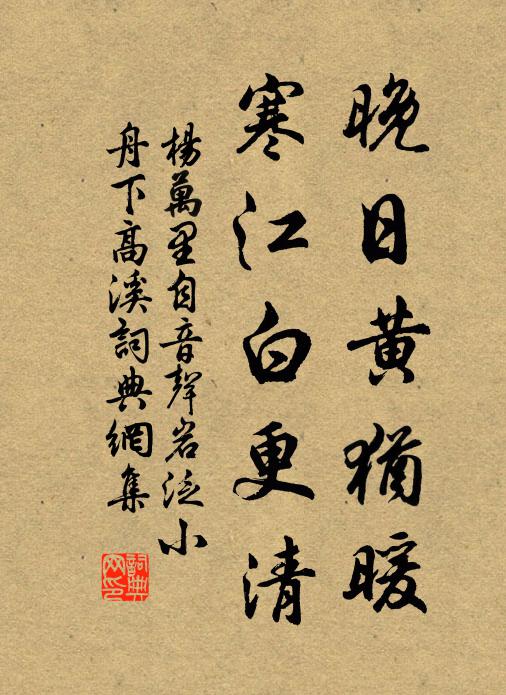 晚日黄猶暖
寒江白更清
楊萬里自音聲岩泛小
舟下高溪詞典網集
詞典网印